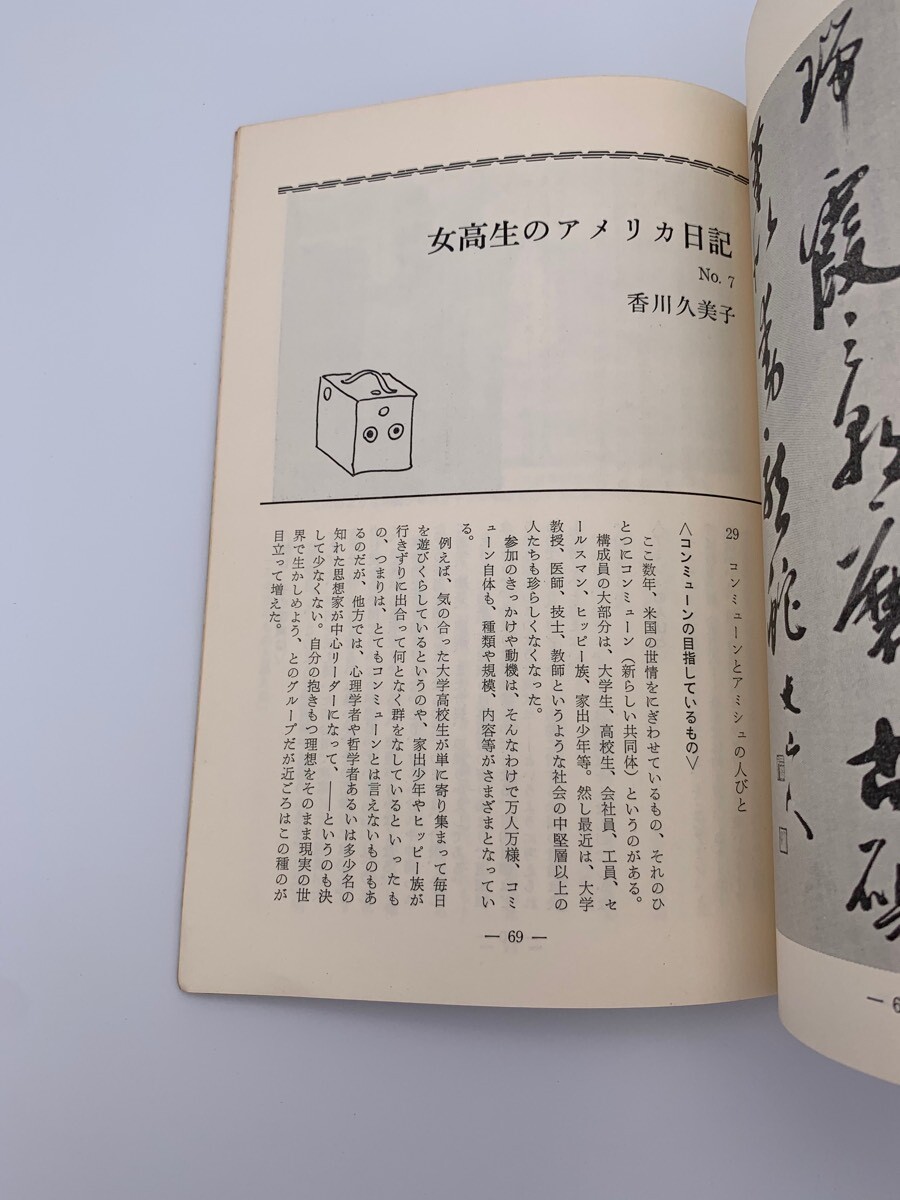 女高生のアメリカ日記
No. 7
香川久美子
29 コンミューンとアミシュの人びと
〈コンミューンの目指しているもの〉
ここ数年、米国の世情をにぎわせているもの、それのひ
とつにコンミューン（新らしい共同体）というのがある。
構成員の大部分は、大学生、高校生、会社員、工員、セ
ールスマン、ヒッピー族、家出少年等。然し最近は、大学
教授、医師、技士、教師というような社会の中堅層以上の
人たちも珍らしくなくなった。
参加のきっかけや動機は、そんなわけで万人万様、コミ
ューン自体も、種類や規模、内容等がさまざまとなってい
る。
例えば、気の合った大学高校生が単に寄り集まって毎日
を遊びくらしているというのや、家出少年やヒッピー族が
行きずりに出合って何となく群をなしているといったも
の、つまりは、とてもコンミューンとは言えないものもあ
るのだが、他方では、心理学者や哲学者あるいは多少名の
知れた思想家が中心リーダーになって、――というのも決
して少なくない。自分の抱きもつ理想をそのまま現実の世
界で生かしめよう、とのグループだが近ごろはこの種のが
目立って増えた。
— 69 —